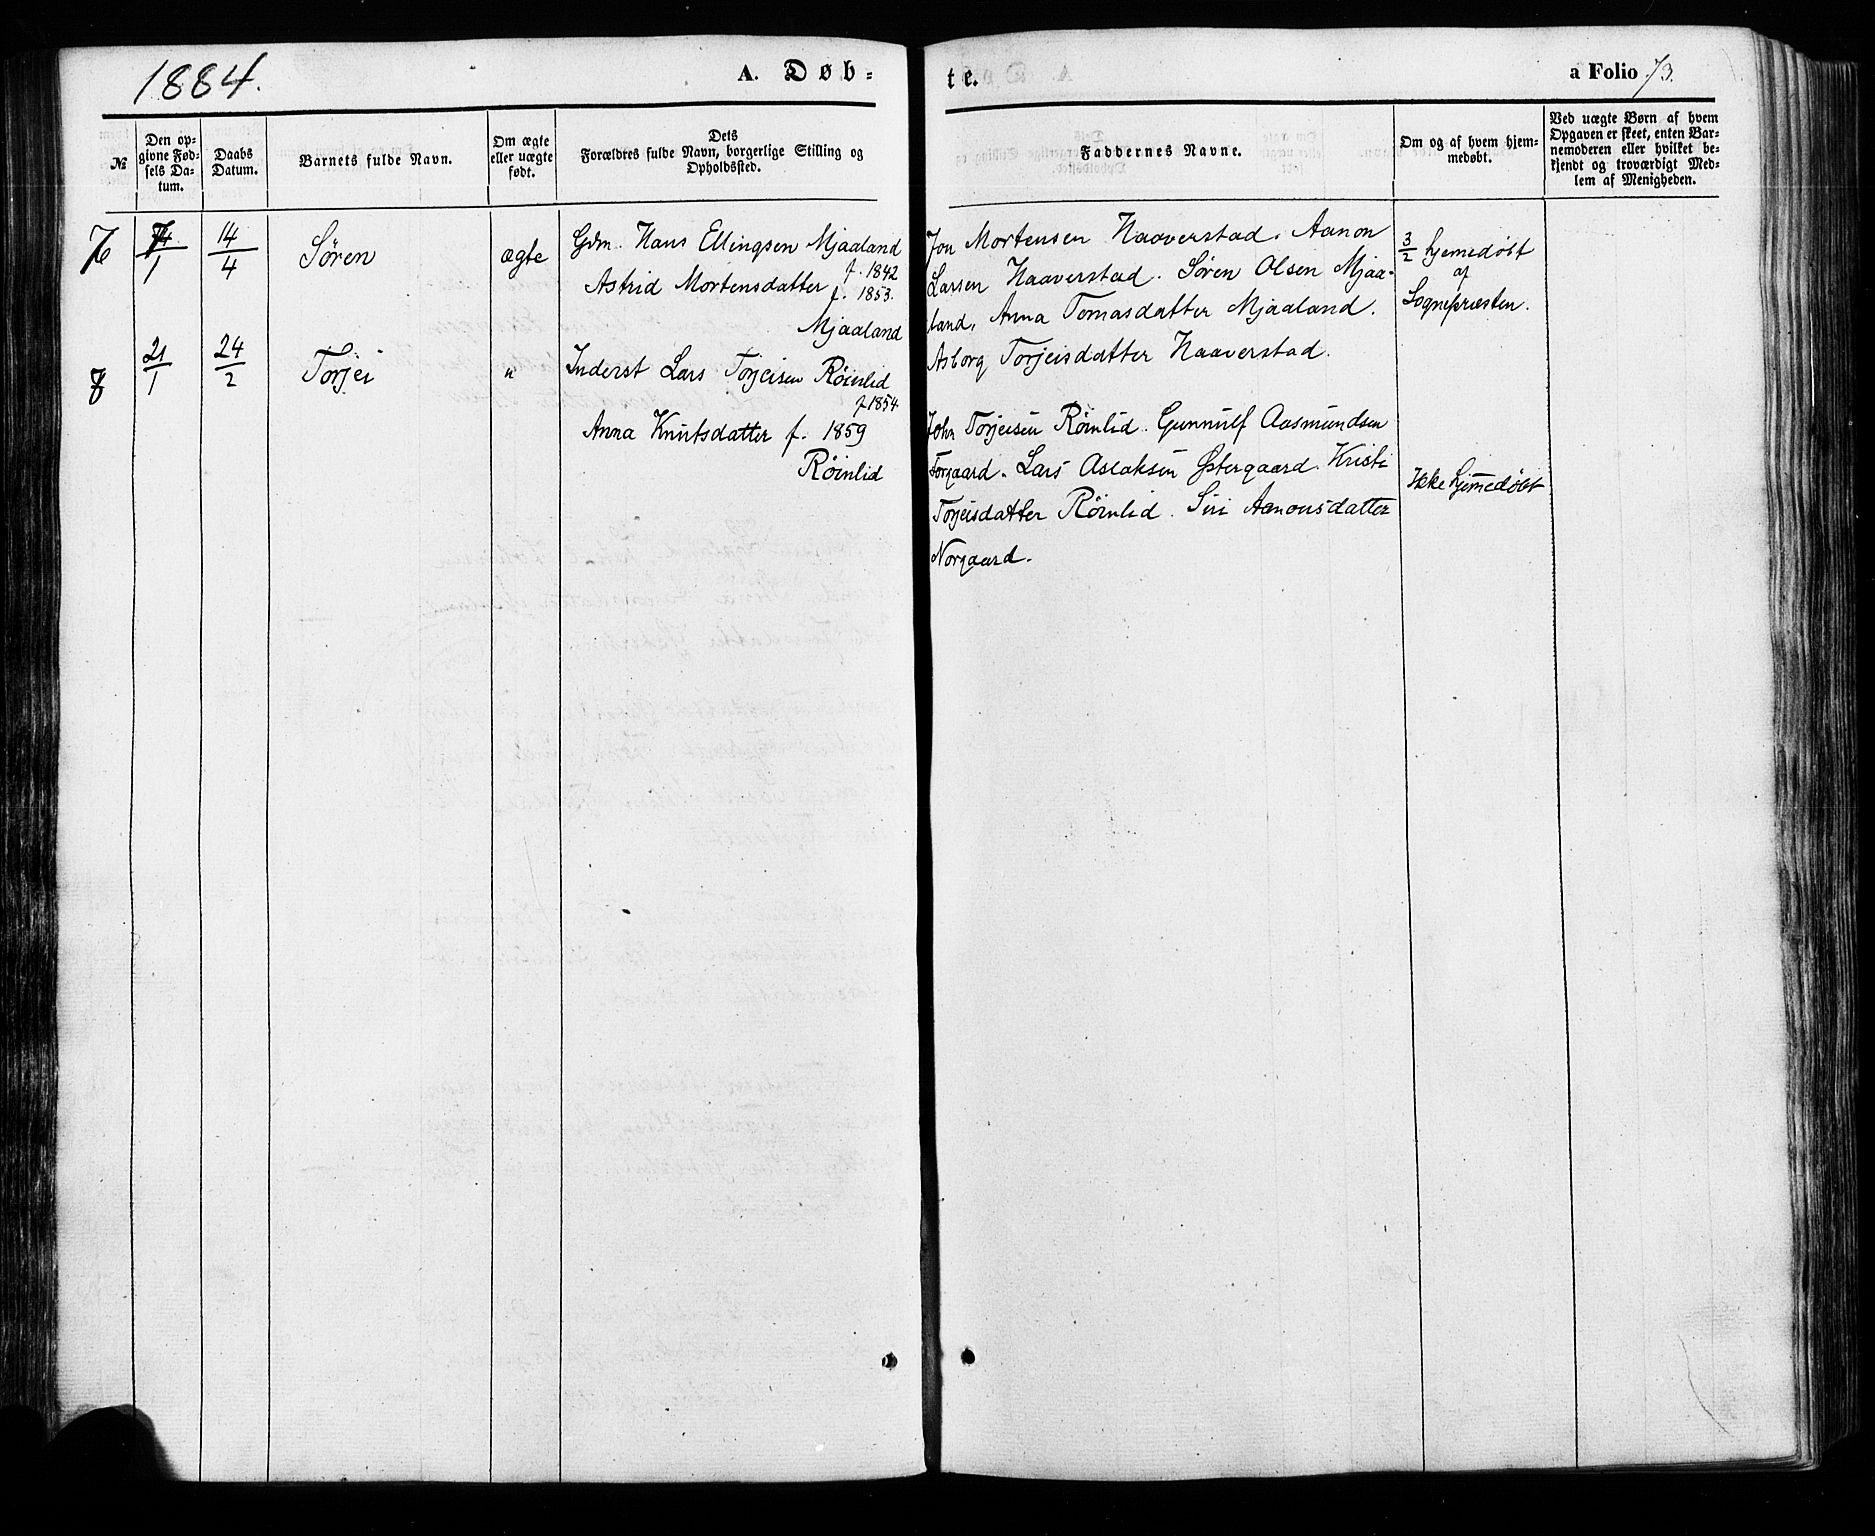 1884.
A. Døb-
te.
a Folio 73.
№
Den op-
givne Fød-
sels Da-
tum.
Daabs
Datum.
Barnets fulde Navn.
Om ægte
eller uægte
født.
Dets
Forældres fulde Navn, borgerlige Stilling og
Opholdssted.
Faddernes Navne.
Om og af hvem hjem-
medøbt.
Ved uægte Børn af hvem
Opgaven er skeet, enten Bar-
nemoderen eller hvilket be-
kjendt og troværdigt Med-
lem af Menigheden.
7
7/1
14/4
Søren
ægte
Gdm. Hans Ellingsen Mjaaland
f. 1842
Astrid Mortensdatter f. 1853.
Mjaaland
Jon Mortensen Haaverstad. Aanon
Larsen Haaverstad. Søren Olsen Mjaa-
land, Anna Tomasdatter Mjaaland.
Asborg Torjeisdatter Haaverstad.
3/2 hjemedøbt
af
Sognepræsten.
8
21/1
24/2
Torjei
"
Inderst Lars Torjeisen Röinlid
f 1854
Anna Knutsdatter f. 1859
Röinlid
John Torjeisen Röinlid. Gunnulf Aasmundsen
Torgaard. Lars Aslaksen Østergaard. Kristi
Torjeisdatter Röinlid. Siri Aanonsdatter
Norgaard.
Ikke hjemedøbt